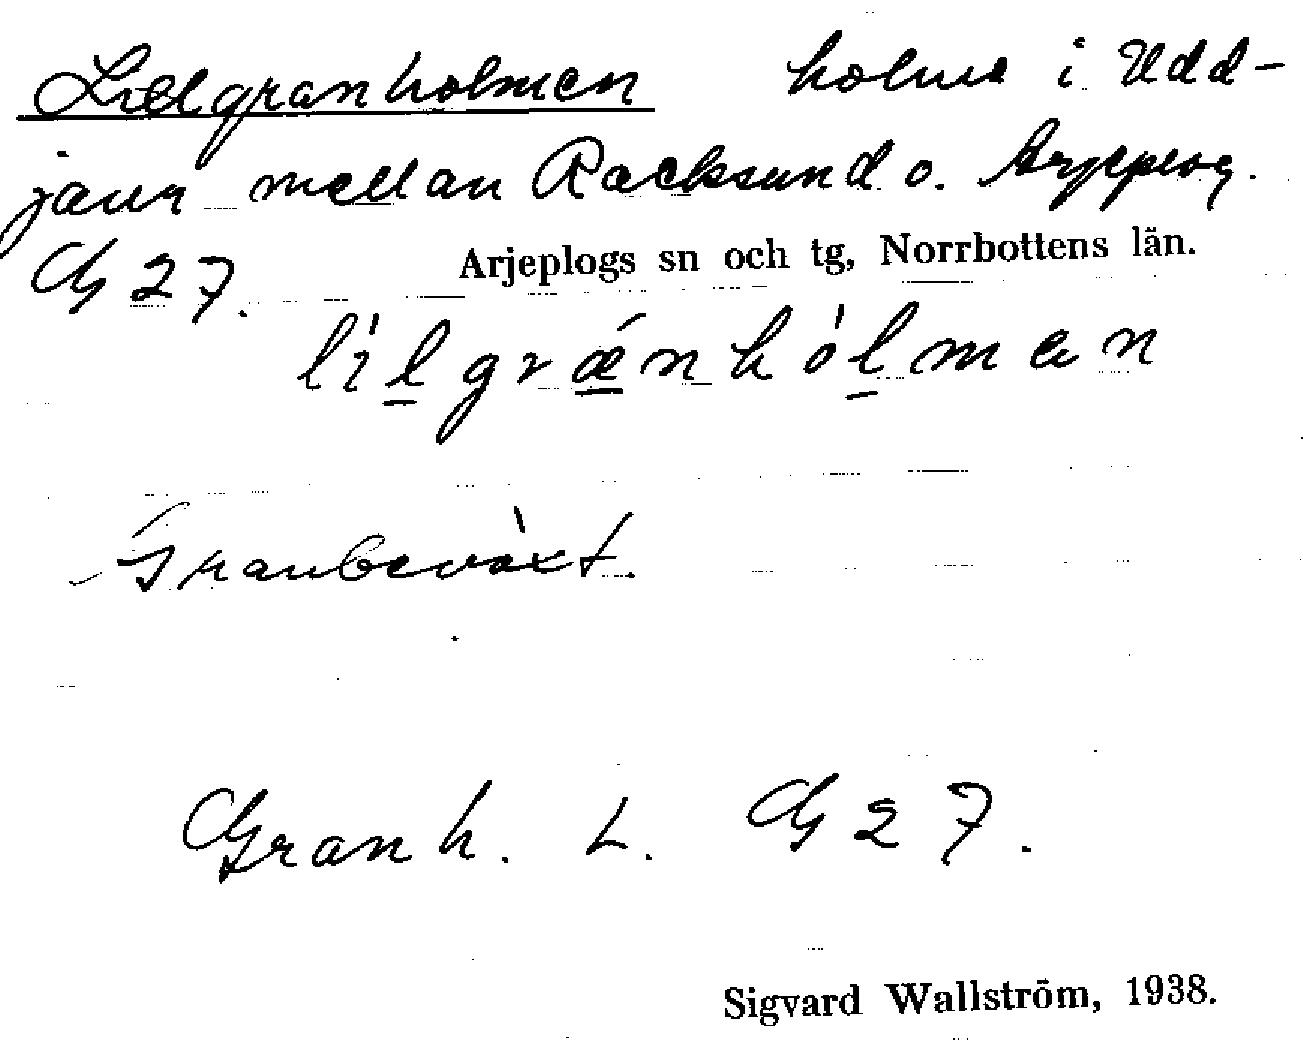 Lillgranholmen holme i Udd-
jaur mellan Racksund o. Arjeplog.
G 27. Arjeplogs sn och tg, Norrbottens län.
lìlgrǽnhòlmen
Granbeväxt.
Granh. L. G 27.
Sigvard Wallström, 1938.